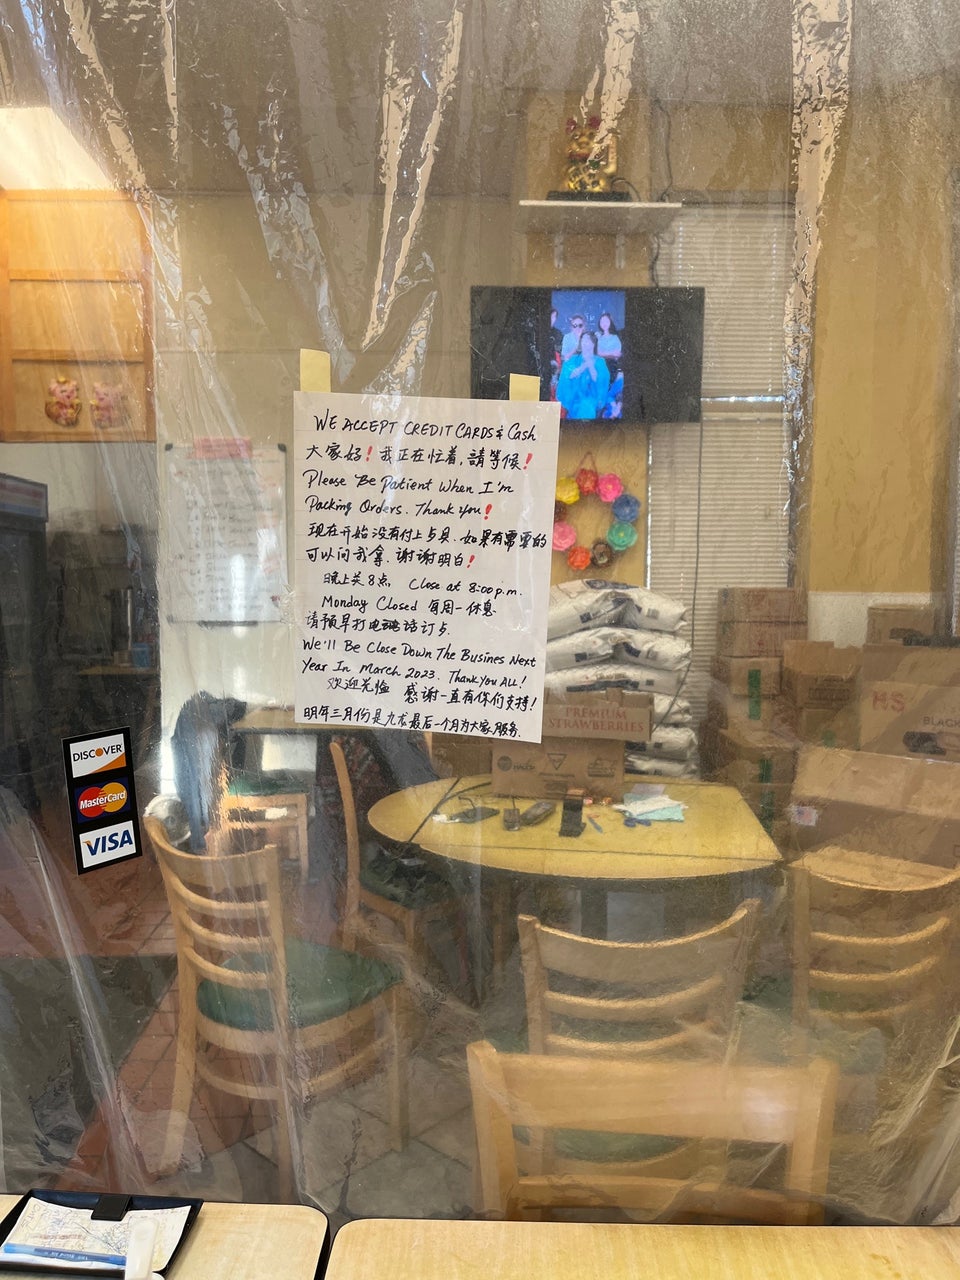 WE ACCEPT CREDIT CARDS & Cash
大家好! 我正在忙着,請等候!
Please Be Patient When I'm
Packing Orders. Thank you!
现在开始没有付上歺具.如果有需要的
可以问我拿.谢谢明白!
晚上关8点 Close at 8:00 p.m.
Monday Closed 每周一休息
请预早打电话订歺.
We'll Be Close Down The Busines Next
Year In March 2023. Thank you ALL!
欢迎光临 感谢一直有你们支持!
明年三月份是九龙最后一个月为大家服务.
DISCOVER
MasterCard
VISA
PREMIUM
STRAWBERRIES
HS
BLACK